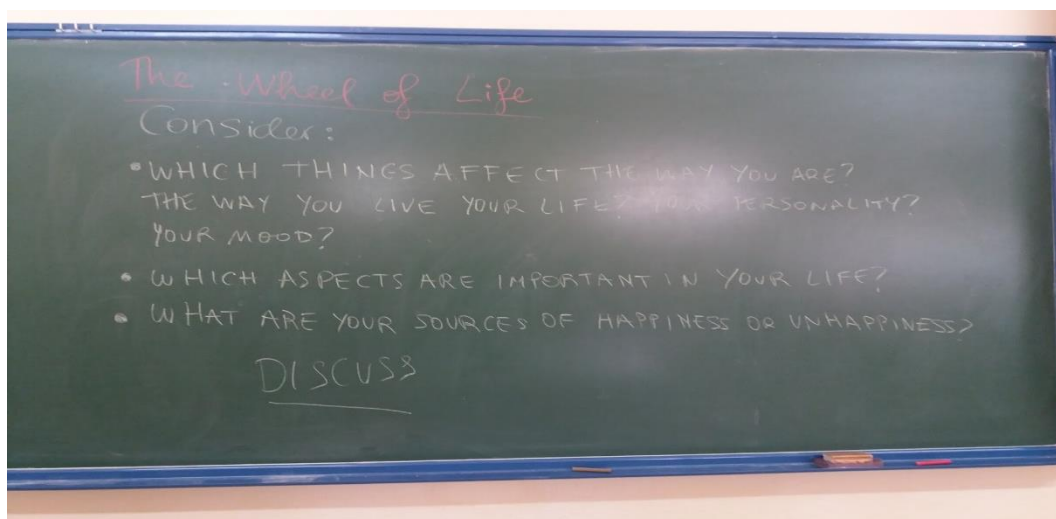 The Wheel of Life
Consider:
• WHICH THINGS AFFECT THE WAY YOU ARE?
THE WAY YOU LIVE YOUR LIFE? YOUR PERSONALITY?
YOUR MOOD?
• WHICH ASPECTS ARE IMPORTANT IN YOUR LIFE?
• WHAT ARE YOUR SOURCES OF HAPPINESS OR UNHAPPINESS?
DISCUSS